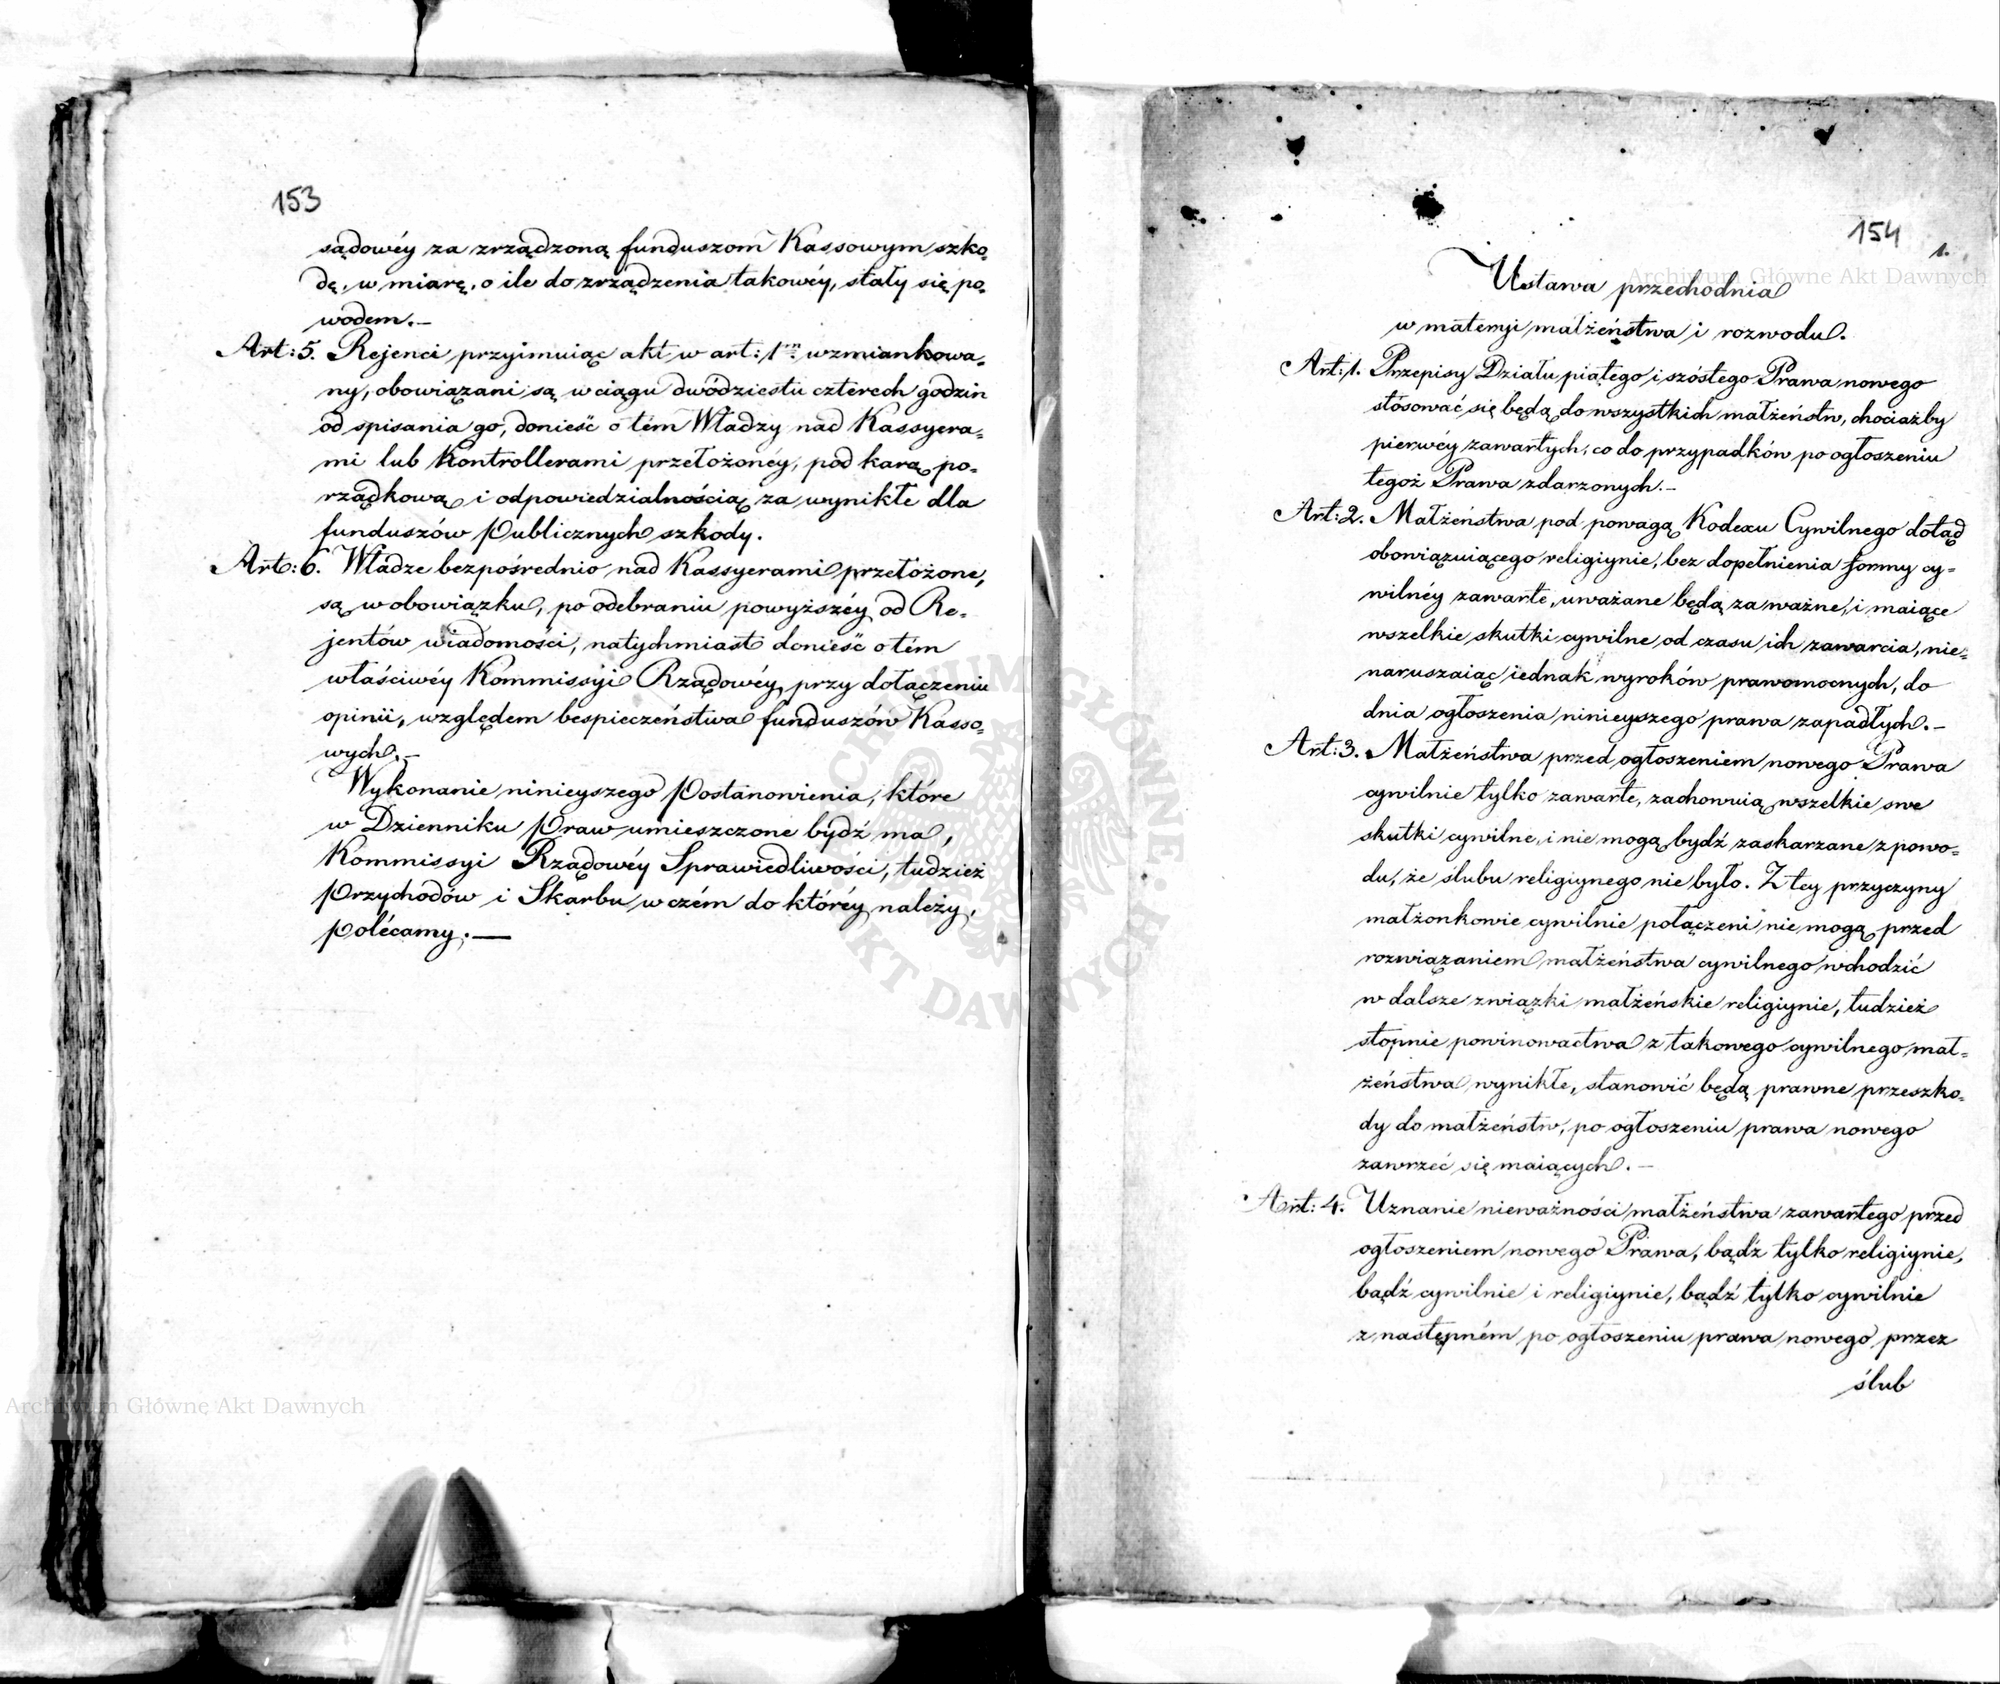 153
sądowéy za zrządzoną funduszom Kassowym szko-
dę, w miarę, o ile do zrządzenia takowéy, stały się po-
wodem.—
Art: 5. Rejenci przyimuiąc akt w art: 1m wzmiankowa-
ny, obowiązani są, w ciągu dwódziestu czterech godzin
od spisania go, donieść o tém Władzy nad Kassyera-
mi lub Kontrollerami przełożonéy, pod karą po-
rządkową i odpowiedzialnością za wynikłe dla
funduszów publicznych szkody.
Art: 6. Władze bezpośrednio nad Kassyerami przełożone,
są w obowiązku, po odebraniu powyższéy od Re-
jentów wiadomości, natychmiast donieść o tém
właściwéy Kommissyi Rządowéy, przy dołączeniu
opinii, względem bespieczeństwa funduszów Kasso-
wych.—
Wykonanie ninieyszego Postanowienia, które
w Dzienniku Praw umieszczone bydź ma,
Kommissyi Rządowéy Sprawiedliwości, tudzież
Przychodów i Skarbu w czém do któréy należy,
polécamy.—
154
1.
Ustawa przechodnia
w materyi małżeństwa i rozwodu.
Art: 1. Przepisy Działu piątego i szóstego Prawa nowego
stósować się będą do wszystkich małżeństw, chociażby
pierwéy zawartych, co do przypadków po ogłoszeniu
tegoż Prawa zdarzonych.—
Art: 2. Małżeństwa pod powagą Kodexu Cywilnego dotąd
obowiązuiącego religiynie, bez dopełnienia formy cy-
wilnéy zawarte, uważane będą za ważne, i maiące
wszelkie skutki cywilne od czasu ich zawarcia, nie-
naruszaiąc iednak wyroków prawomocnych, do
dnia ogłoszenia ninieyszego prawa zapadłych.—
Art: 3. Małżeństwa przed ogłoszeniem nowego Prawa
cywilnie tylko zawarte, zachowuią wszelkie swe
skutki cywilne, i nie mogą bydź zaskarzane z powo-
du, że ślubu religiynego nie było. Z tey przyczyny
małżonkowie cywilnie połączeni nie mogą przed
rozwiązaniem małżeństwa cywilnego wchodzić
w dalsze związki małżeńskie religiynie, tudzież
stopnie powinowactwa z takowego cywilnego mał-
żeństwa wynikłe, stanowić będą prawne przeszko-
dy do małżeństw, po ogłoszeniu prawa nowego
zawrzeć się maiących.—
Art: 4. Uznanie nieważności małżeństwa zawartego przed
ogłoszeniem nowego Prawa, bądź tylko religiynie,
bądź cywilnie i religiynie, bądź tylko cywilnie
z następném po ogłoszeniu prawa nowego przez
ślub
Archiwum Główne Akt Dawnych
Archiwum Główne Akt Dawnych
ARCHIWUM GŁÓWNE AKT DAWNYCH